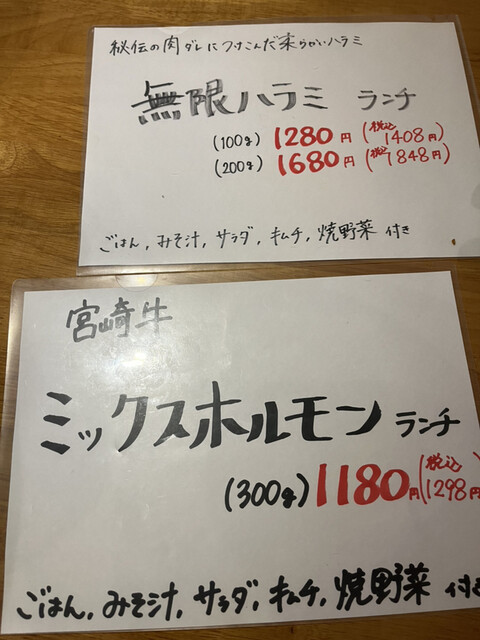 秘伝の肉ダレにつけこんだ柔らかいハラミ
無限ハラミ ランチ
(100g) 1280円 (税込1408円)
(200g) 1680円 (税込1848円)
ごはん, みそ汁, サラダ, キムチ, 焼野菜 付き
宮崎牛
ミックスホルモン ランチ
(300g) 1180円 (税込1298円)
ごはん, みそ汁, サラダ, キムチ, 焼野菜 付き